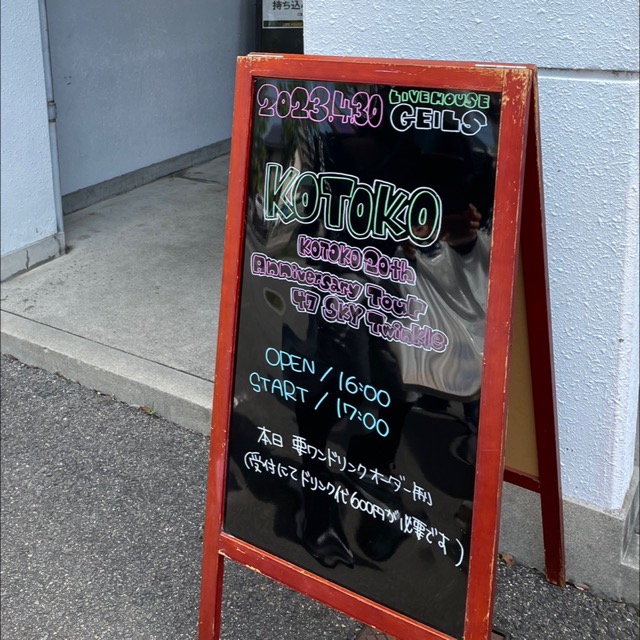 持ち込み
2023.4.30 LIVE HOUSE
GEILS
KOTOKO
KOTOKO 20th
Anniversary Tour
47 SKY Twinkle
OPEN / 16:00
START / 17:00
本日 要ワンドリンクオーダー制
(受付にてドリンク代600円が必要です)